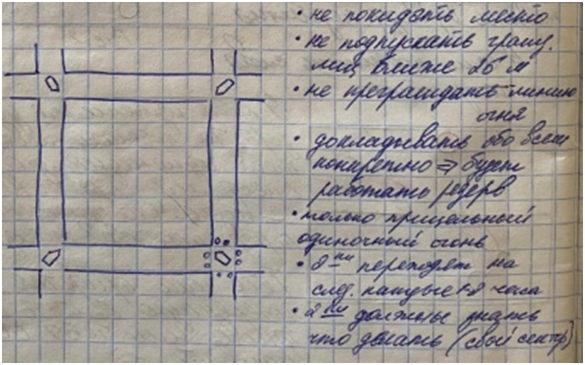 • не покидать место
• не подпускать гражд.
лиц ближе 25 м
• не преграждать линию
огня
• докладывать обо всем
конкретно ⇒ будет
работать резерв
• только прицельный
одиночный огонь
• 2 ки переходят на
след. каждые 2 часа
• 2 ки должны знать
что делать (свой сектр)